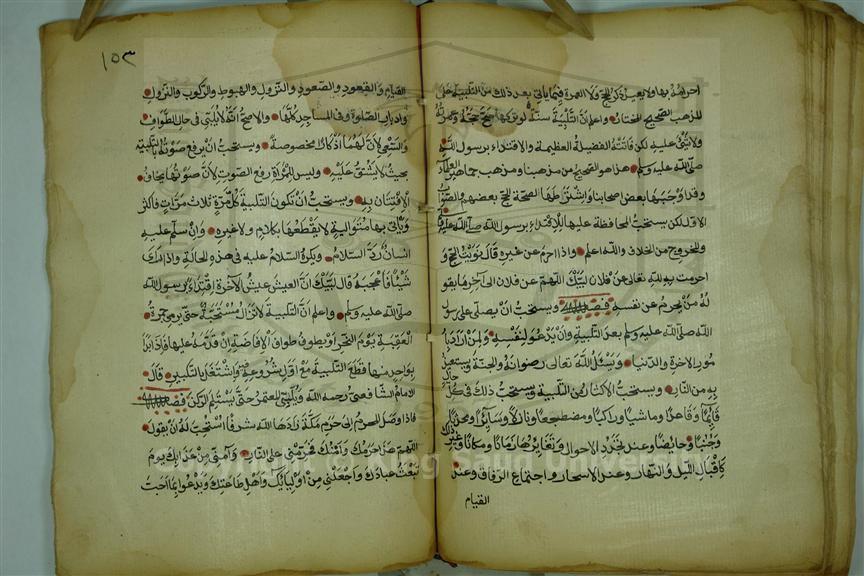 احرامه بها ولا يعيد ذكر الحج ولا العمرة فيما ياتي بعد ذلك من التلبية على
المذهب الصحيح المختار واعلم ان التلبية سنة لو تركها صح حجه وعمرته
ولا شئ عليه لكن فاتته الفضيلة العظيمة والاقتداء برسول الله
صلى الله عليه وسلم هذا هو الصحيح من مذهبنا ومذهب جماهير العلماء
وقد اوجبها بعض اصحابنا واشترطها لصحة الحج بعضهم والصواب
الاول لكن يستحب المحافظة عليها للاقتداء برسول الله صلى الله عليه وسلم
وللخروج من الخلاف والله اعلم واذا احرم عن غيره قال نويت الحج و
احرمت به لله تعالى عن فلان لبيك اللهم عن فلان الى آخر ما يقو
له من يحرم عن نفسه فصل ويستحب ان يصلي على رسول
الله صلى الله عليه وسلم بعد التلبية وان يدعو لنفسه ولمن اراد با
مور الاخرة والدنيا ويسئل الله تعالى رضوانه والجنة ويستعيذ
به من النار ويستحب الاكثار من التلبية ويستحب ذلك في كل حال
قائما وقاعدا وماشيا وراكبا ومضطجعا ونازلا وسائرا ومحدثا
وجنبا وحايضا وعند تجدد الاحوال وتغايرها زمانا ومكانا وغير ذلك
كاقبال الليل والنهار وعند الاسحار واجتماع الرفاق وعند
القيام
١٥٣
القيام والقعود والصعود والنزول والهبوط والركوب والنزول
وادبار الصلوة وفي المساجد كلها والاصح انه لا يلبي في حال الطواف
والسعي لان لهما اذكارا مخصوصة ويستحب ان يرفع صوته بالتلبية
بحيث لا يشق عليه وليس للمرأة رفع الصوت لان صوتها يخاف
الافتتان به ويستحب ان تكون التلبية كل مرة ثلاث مرات فاكثر
ويأتي بها متوالية لا يقطعها بكلام ولا غيره وان سلم عليه
انسان رد السلام ويكره السلام عليه في هذه الحالة واذا رأى
شيئا فاعجبه قال لبيك ان العيش عيش الآخرة اقتداء برسول الله
صلى الله عليه وسلم واعلم ان التلبية لا تزال مستحبة حتى يرمي جمرة
العقبة يوم النحر او يطوف طواف الافاضة ان قدمه عليها فاذا بدأ
بواحد منها قطع التلبية مع اول شروعه واشتغل بالتكبير قال
الامام الشافعي رحمه الله ويلبي المعتمر حتى يستلم الركن فصل
فاذا وصل المحرم الى حرم مكة زادها الله شرفا استحب له ان يقول
اللهم هذا حرمك وامنك فحرمني على النار وآمني من عذابك يوم
تبعث عبادك واجعلني من اوليائك واهل طاعتك ويدعو بما احب